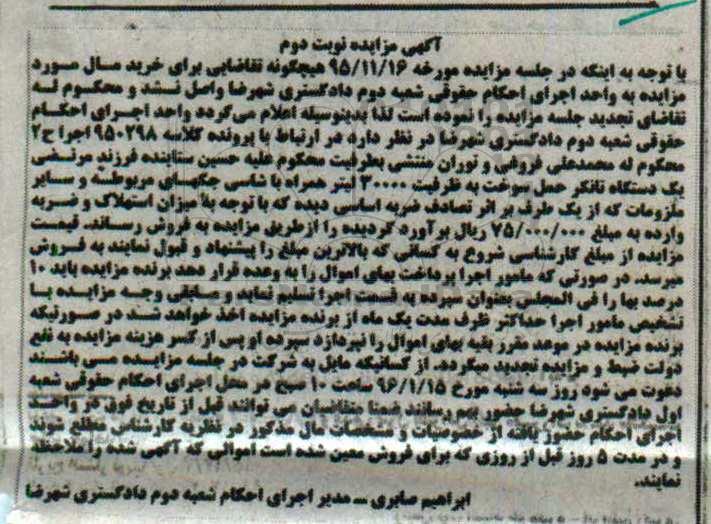 آگهی مزایده نوبت دوم
با توجه به اینکه در جلسه مزایده مورخه ۹۵/۱۱/۱۶ هیچگونه تقاضایی برای خرید مال مورد
مزایده به واحد اجرای احکام حقوقی شعبه دوم دادگستری شهرضا واصل نشد و محکوم له
تقاضای تجدید جلسه مزایده را نموده است لذا بدینوسیله اعلام می گردد واحد اجرای احکام
حقوقی شعبه دوم دادگستری شهرضا در نظر دارد در ارتباط با پرونده کلاسه ۹۵۰۲۹۸ اجرا ح۲
محکوم له محمدعلی فروغی و توران منتشی بطرفیت محکوم علیه حسین ستاینده فرزند مرتضی
یک دستگاه تانکر حمل سوخت به ظرفیت ۳۰۰۰۰ لیتر همراه با شاسی جکهای مربوطه و سایر
ملزومات که از یک طرف بر اثر تصادف ضربه اساسی دیده که با توجه به میزان استهلاک و ضربه
وارده به مبلغ ۷۵/۰۰۰/۰۰۰ ریال برآورد گردیده را از طریق مزایده به فروش رساند. قیمت
مزایده از مبلغ کارشناسی شروع به کسانی که بالاترین مبلغ را پیشنهاد و قبول نمایند به فروش
میرسد. در صورتی که مامور اجرا پرداخت بهای اموال را به وعده قرار دهد برنده مزایده باید ۱۰
درصد بها را فی المجلس بعنوان سپرده به قسمت اجرا تسلیم نماید و مابقی وجه مزایده با
تشخیص مامور اجرا حداکثر ظرف مدت یک ماه از برنده مزایده اخذ خواهد شد در صورتیکه
برنده مزایده در موعد مقرر بقیه بهای اموال را نپردازد سپرده او پس از کسر هزینه مزایده به نفع
دولت ضبط و مزایده تجدید میگردد. از کسانیکه مایل به شرکت در جلسه مزایده می باشند
دعوت می شود روز سه شنبه مورخ ۹۶/۱/۱۵ ساعت ۱۰ صبح در محل اجرای احکام حقوقی شعبه
اول دادگستری شهرضا حضور بهم رسانند ضمنا متقاضیان می توانند قبل از تاریخ فوق در واحد
اجرای احکام حضور یافته از خصوصیات و مشخصات مال مذکور در نظریه کارشناس مطلع شوند
و در مدت ۵ روز قبل از روزی که برای فروش معین شده است اموالی که آگهی شده را ملاحظه
نمایند.
ابراهیم صابری ــ مدیر اجرای احکام شعبه دوم دادگستری شهرضا